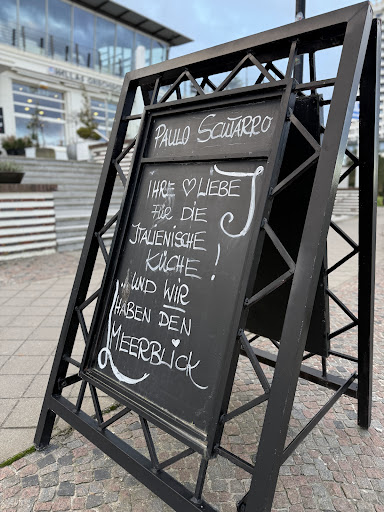 PAULO SCUTARRO
IHRE ♡ LIEBE
FÜR DIE
ITALIENISCHE
KÜCHE !
UND WIR
HABEN DEN
MEERBLICK